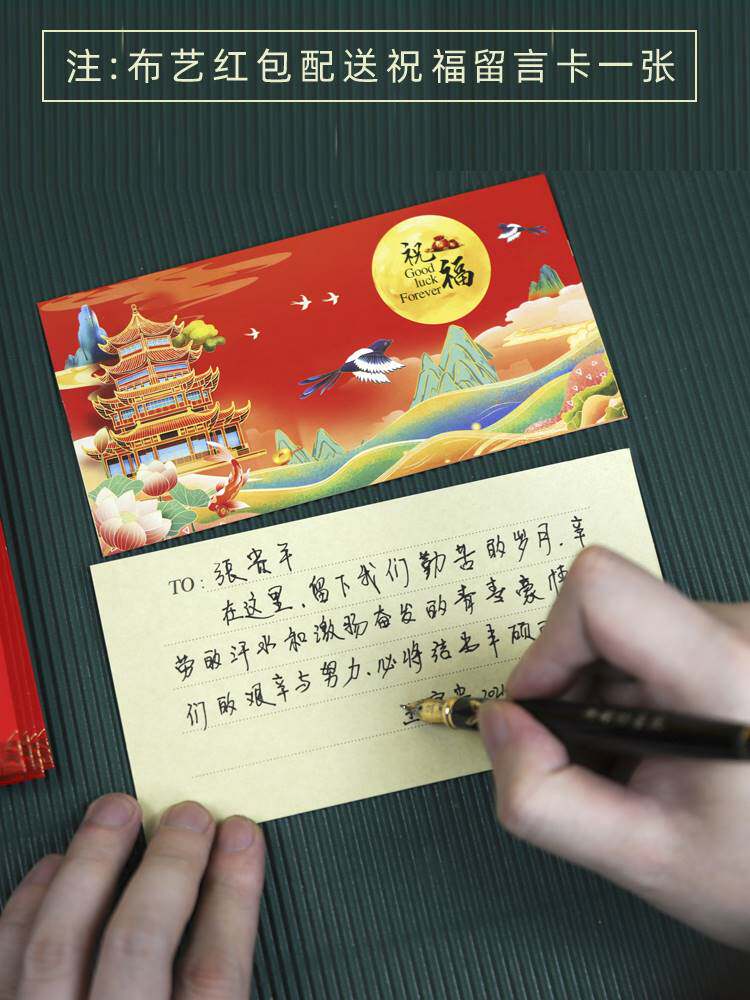 注:布艺红包配送祝福留言卡一张
祝福
Good
luck
Forever
TO:張贵平
在这里,留下我们勤苦的岁月.辛
劳的汗水和激扬奋发的青春豪情
们的艰辛与努力.必将结出丰硕